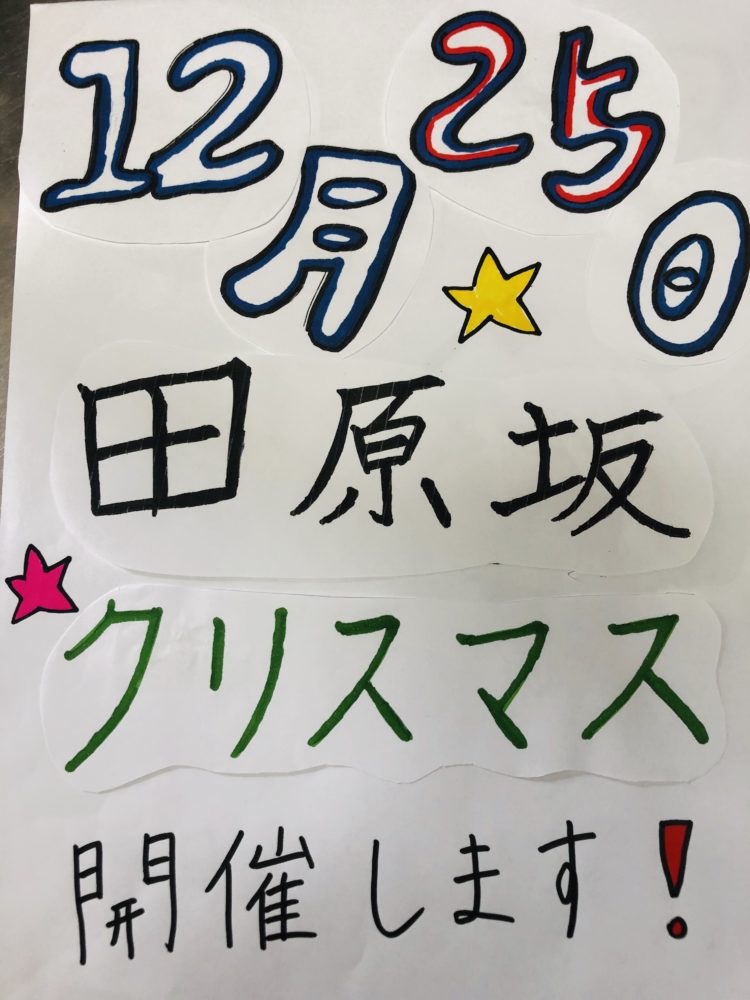 12月25日
田原坂
クリスマス
開催します！